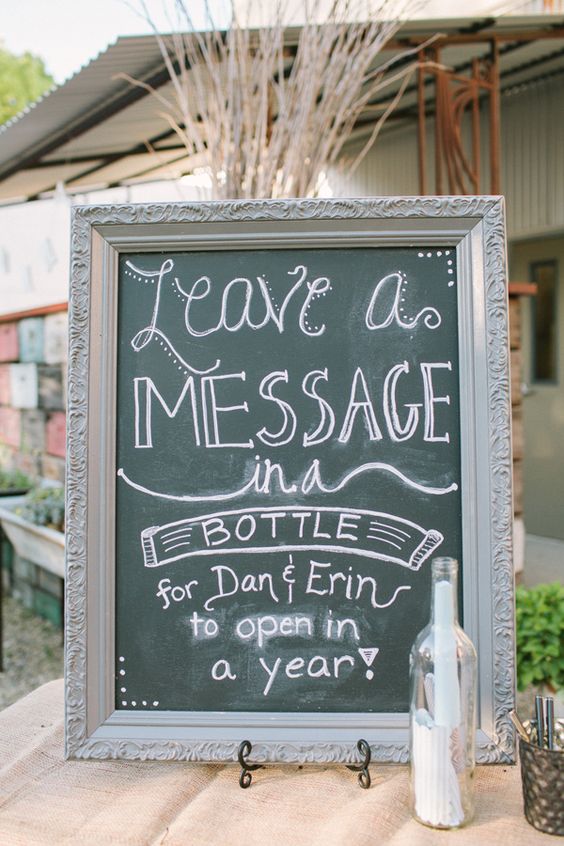 Leave a
MESSAGE
in a
BOTTLE
for Dan & Erin
to open in
a year!